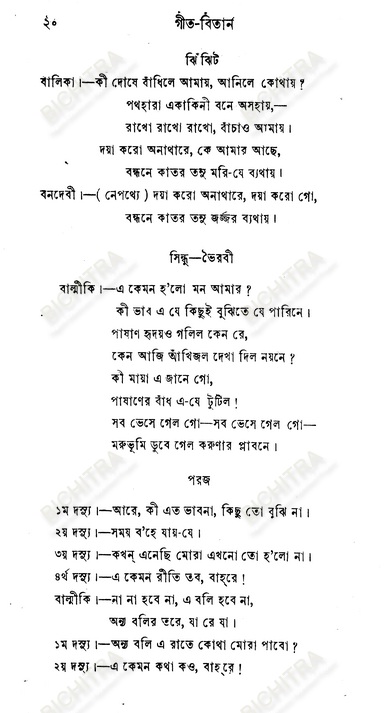 ২০ গীত-বিতান
ঝিঁঝিট
বালিকা।—কী দোষে বাঁধিলে আমায়, আনিলে কোথায়?
পথহারা একাকিনী বনে অসহায়,—
রাখো রাখো রাখো, বাঁচাও আমায়।
দয়া করো অনাথারে, কে আমার আছে,
বন্ধনে কাতর তনু মরি-যে ব্যথায়।
বনদেবী।—( নেপথ্যে ) দয়া করো অনাথারে, দয়া করো গো,
বন্ধনে কাতর তনু জর্জ্জর ব্যথায়।
সিন্ধু—ভৈরবী
বাল্মীকি।—এ কেমন হ'লো মন আমার?
কী ভাব এ যে কিছুই বুঝিতে যে পারিনে।
পাষাণ হৃদয়ও গলিল কেন রে,
কেন আজি আঁখিজল দেখা দিল নয়নে?
কী মায়া এ জানে গো,
পাষাণের বাঁধ এ-যে টুটিল!
সব ভেসে গেল গো—সব ভেসে গেল গো—
মরুভূমি ডুবে গেল করুণার প্লাবনে।
পরজ
১ম দস্যু।—আরে, কী এত ভাবনা, কিছু তো বুঝি না।
২য় দস্যু।—সময় ব'হে যায়-যে।
৩য় দস্যু।—কখন্ এনেছি মোরা এখনো তো হ'লো না।
৪র্থ দস্যু।—এ কেমন রীতি তব, বাহ্‌রে!
বাল্মীকি।—না না হবে না, এ বলি হবে না,
অন্য বলির তরে, যা রে যা।
১ম দস্যু।—অন্য বলি এ রাতে কোথা মোরা পাবো?
২য় দস্যু।—এ কেমন কথা কও, বাহ্‌রে!
BICHITRA